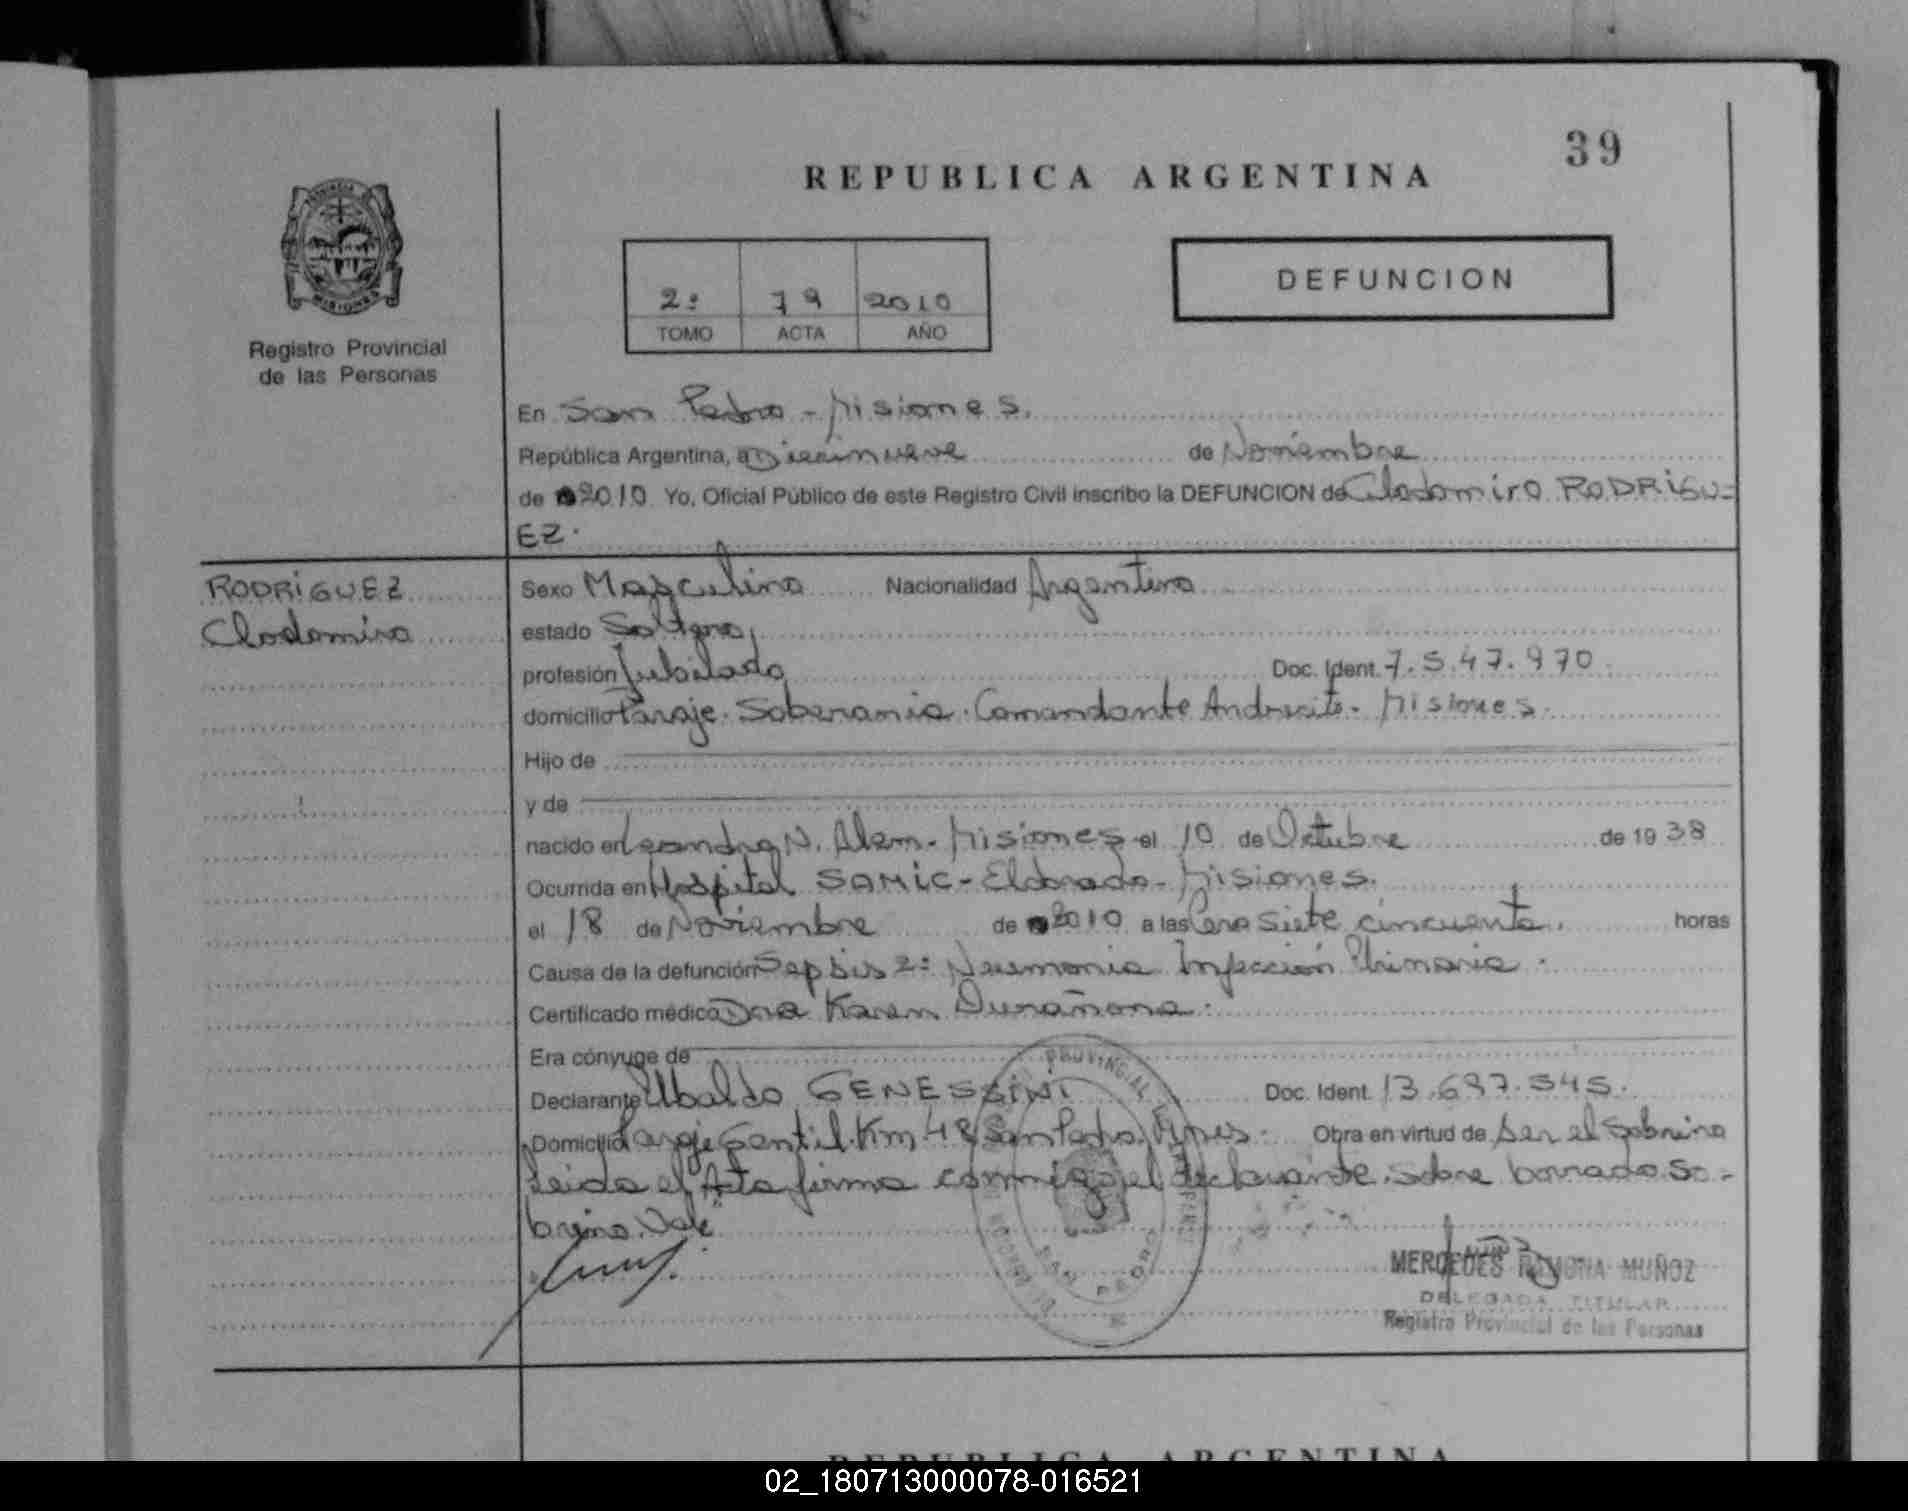 39
REPUBLICA ARGENTINA
PROVINCIA
MISIONES
Registro Provincial
de las Personas
2º 79 2010
TOMO ACTA AÑO
DEFUNCION
En San Pedro - Misiones.
República Argentina, a Diecinueve de Noviembre
de 2010 Yo, Oficial Público de este Registro Civil inscribo la DEFUNCION de Clodomiro RODRIGU-
EZ.
RODRIGUEZ
Clodomiro
Sexo Masculino Nacionalidad Argentino
estado Soltero
profesión Jubilado Doc. Ident. 7.547.970.
domicilio Paraje Soberania. Comandante Andresito. Misiones.
Hijo de
y de
nacido en Leandro N. Alem. Misiones el 10 de Octubre de 19 38
Ocurrida en Hospital SAMIC - Eldorado - Misiones.
el 18 de Noviembre de 2010 a las Cero siete cincuenta. horas
Causa de la defunción Sepsis 2º Neumonia Infección Urinaria.
Certificado médico Dra Karen Durañona.
Era cónyuge de
Declarante Ubaldo GENESSINI Doc. Ident. 13.697.545.
Domicilio Paraje Gentil. Km 48 San Pedro. Mnes. Obra en virtud de ser el Sobrino
Leida el Acta firma conmigo el declarante. sobre borrado. So-
brino. Vale"
PROVINCIAL
SAN PEDRO
MERCEDES RAMONA MUÑOZ
DELEGADA TITULAR
Registro Provincial de las Personas
REPUBLICA ARGENTINA
02_180713000078-016521